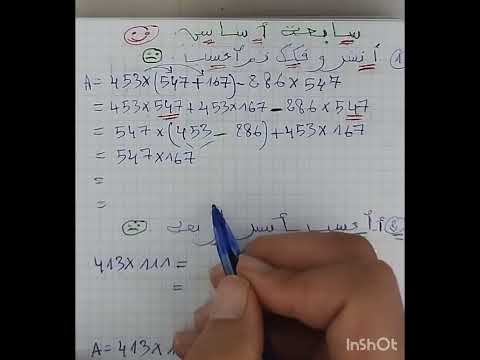 سابعة أساسي
1) أنشر و فكك ثم أحسب
A = 453×(547+167)-886×547
= 453×547+453×167-886×547
= 547×(453-886)+453×167
= 547×167
=
=
2) أحسب أنشر و
413×111 =
=
A = 413×1
InShOt